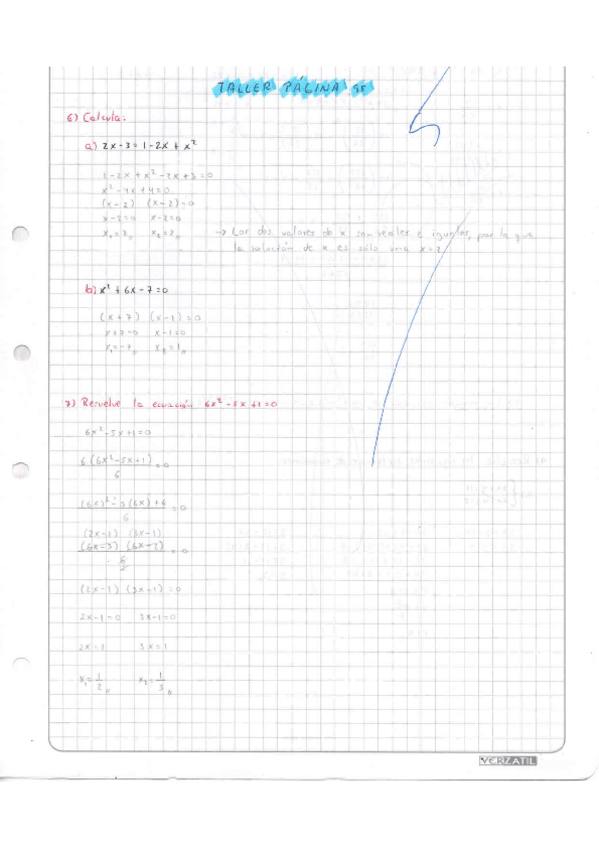 TALLER PÁGINA 95
6) Calcula:
a) 2x-3=1-2x+x²
1-2x+x²-2x+3=0
x²-4x+4=0
(x-2) (x-2)=0
x-2=0 x-2=0
x₁=2 x₂=2 → Los dos valores de x son reales e iguales, por lo que
la solución de x es sólo una x=2
b) x²+6x-7=0
(x+7) (x-1)=0
x+7=0 x-1=0
x₁=-7 x₂=1
7) Resuelve la ecuación 6x²-5x+1=0
6x²-5x+1=0
6(6x²-5x+1)=0
6
(6x)²-5(6x)+6=0
6
(2x-1) (3x-1)
(6x-3) (6x-2)=0
6
(2x-1) (3x-1)=0
2x-1=0 3x-1=0
2x=1 3x=1
x₁=1/2 x₂=1/3
VERZATIL